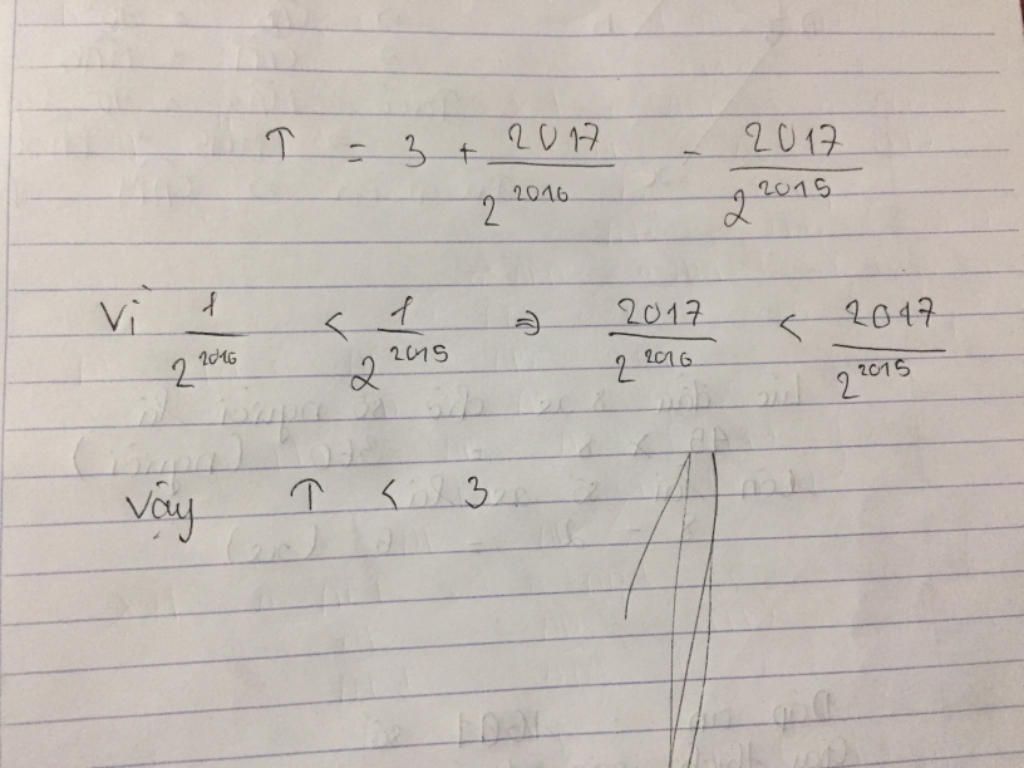 T = 3 + 2017/2^2016 - 2017/2^2015
Vì 1/2^2016 < 1/2^2015 ⇒ 2017/2^2016 < 2017/2^2015
Vậy T < 3